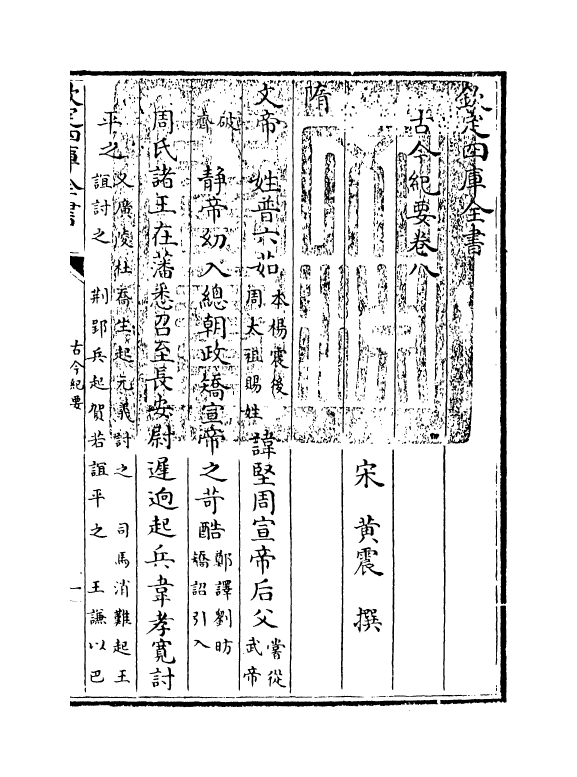 欽定四庫全書
古今紀要卷八
宋 黄震 撰
隋
文帝 姓普六茹 本楊震後 周太祖賜姓 諱堅周宣帝后父 嘗從 武帝
破 齊 静帝幼入總朝政矯宣帝之苛酷 鄭譯劉昉 矯詔引入
周氏諸王在藩悉召至長安尉遲逈起兵韋孝寛討
平之 又廣陵杜喬生起元義討之 司馬消難起王
誼討之 荆郢兵起賀若誼平之 王謙以巴
欽定四庫全書
古今紀要
一